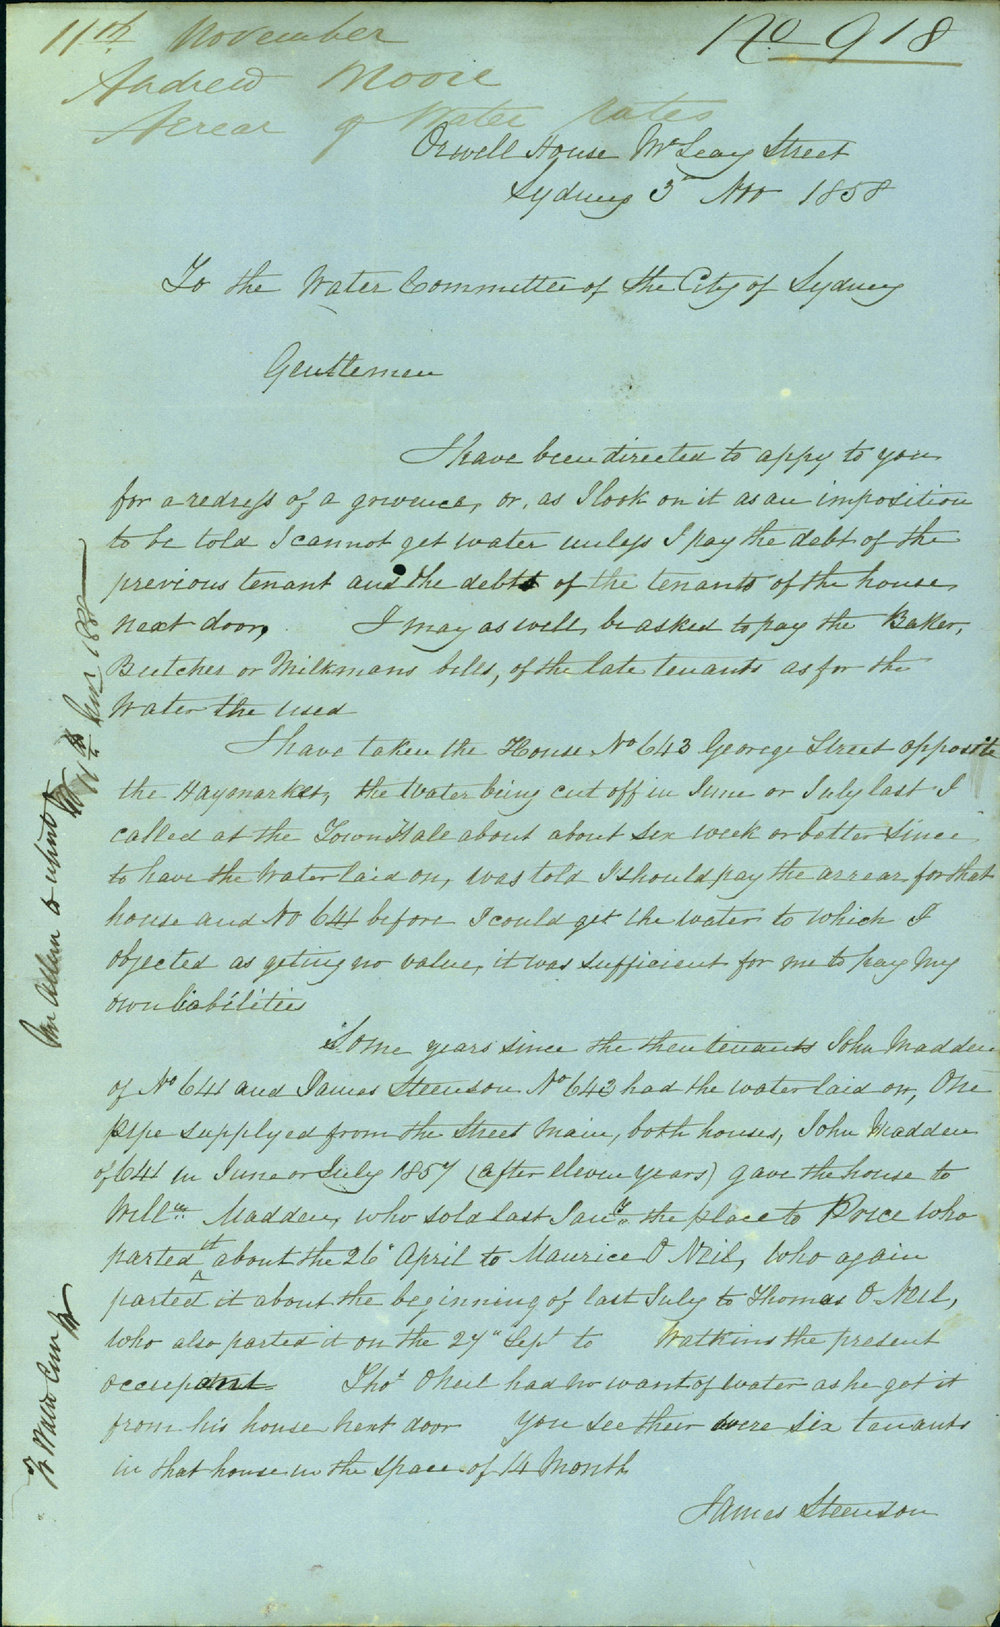 11th November
No 918
Andrew Moore
Arrear of Water rates
Orwell House McLeay Street
Sydney 3d Nov 1858
To the Water Committee of the City of Sydney
Gentlemen
I have been directed to appy to you
for a redress of a grivence, or, as I look on it as an imposition
to be told I cannot get water unless I pay the debt of the
previous tenant and the debts of the tenants of the house
next door, I may as well be asked to pay the Baker,
Butcher or Milkmans bills, of the late tenants as for the
Water the used
I have taken the House No 643 George Street opposite
the Haymarket, the Water being cut off in June or July last I
called at the Town Hall about about six week or better since
to have the Water laid on, was told I should pay the arrear for that
house and No 641 before I could get the water to which I
objected as geting no value, it was sufficient for me to pay my
own liabilities
Some years since the then tenants John Madden
of No 641 and James Steenson No 643 had the water laid on, One
pipe supplyed from the Street Main, both houses, John Madden
of 641 in June or July 1857 (after eleven years) gave the house to
Willm Madden, who sold last Jany the place to Price who
parted it about the 26th April to Maurice O Neil, Who again
parted it about the beginning of last July to Thomas O Neil,
who also parted it on the 27th Sept to Watkins the present
occupant Thos O Neil had no want of water as he got it
from his house next door You see their were six tenants
in that house in the space of 14 Month
James Steenson
To Water Com